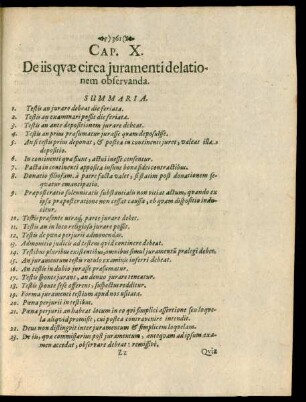 ❧) 761 (❧
CAP. X.
De iis qvæ circa juramenti delatio-
nem observanda.
SUMMARIA.
1. Testis an jurare debeat die feriata.
2. Testis an examinari possit die feriata.
3. Testis an ante depositionem jurare debeat.
4. Testis an prius præsumatur jurasse quam deposuisse.
5. An si testis prius deponat, & postea in continenti juret, valeat illa
depositio.
6. In continenti quæ fiunt, actui inesse censentur.
7. Pacta in continenti apposita insunt bonæ fidei contractibus.
8. Donatio filiofam. à patre facta valet, si statim post donationem se-
quatur emancipatio.
9. Præposteratio solennitatis substantialis non vitiat actum, quando ex
ipsa præposteratione non cessat causa, ob quam dispositio indu-
citur.
10. Testis præsente utraq; parte jurare debet.
11. Testis an in loco religioso jurare possit.
12. Testis de pœna perjurii admonendus.
13. Admonitio judicis ad testem quid continere debeat.
14. Testibus pluribus existentibus, omnibus simul juramentũ prælegi debet.
15. An juramentum testis rotulo examinis inseri debeat.
16. An testis in dubio jurasse præsumatur.
17. Testis ignotè jurans, an denuo jurare teneatur.
18. Testis sponte sese offerens, suspectus redditur.
19. Forma juramenti testium apud nos usitata.
20. Pœna perjurii in testibus.
21. Pœna perjurii an habeat locum in eo qui simplici assertione seu loque-
la aliquid promisit, cui postea contravenire intendit.
22. Deus non distinguit inter juramentum & simplicem loquelam.
23. De iis, quæ commissarius post juramentum, antequam ad ipsum exa-
men accedat, observare debeat: remissivè.
Zz
Qvia